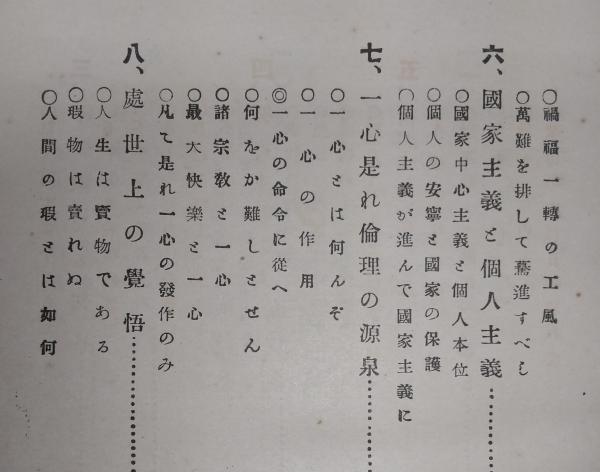 ○禍福一轉の工風
○萬難を排して驀進すべし
六、國家主義と個人主義…………
○國家中心主義と個人本位
○個人の安寧と國家の保護
○個人主義が進んで國家主義に
七、一心是れ倫理の源泉…………
○一心とは何んぞ
○一心の作用
◎一心の命令に從へ
○何をか難しとせん
○諸宗教と一心
○最大快樂と一心
○凡て是れ一心の發作のみ
八、處世上の覺悟…………
○人生は賣物である
○瑕物は賣れぬ
○人間の瑕とは如何